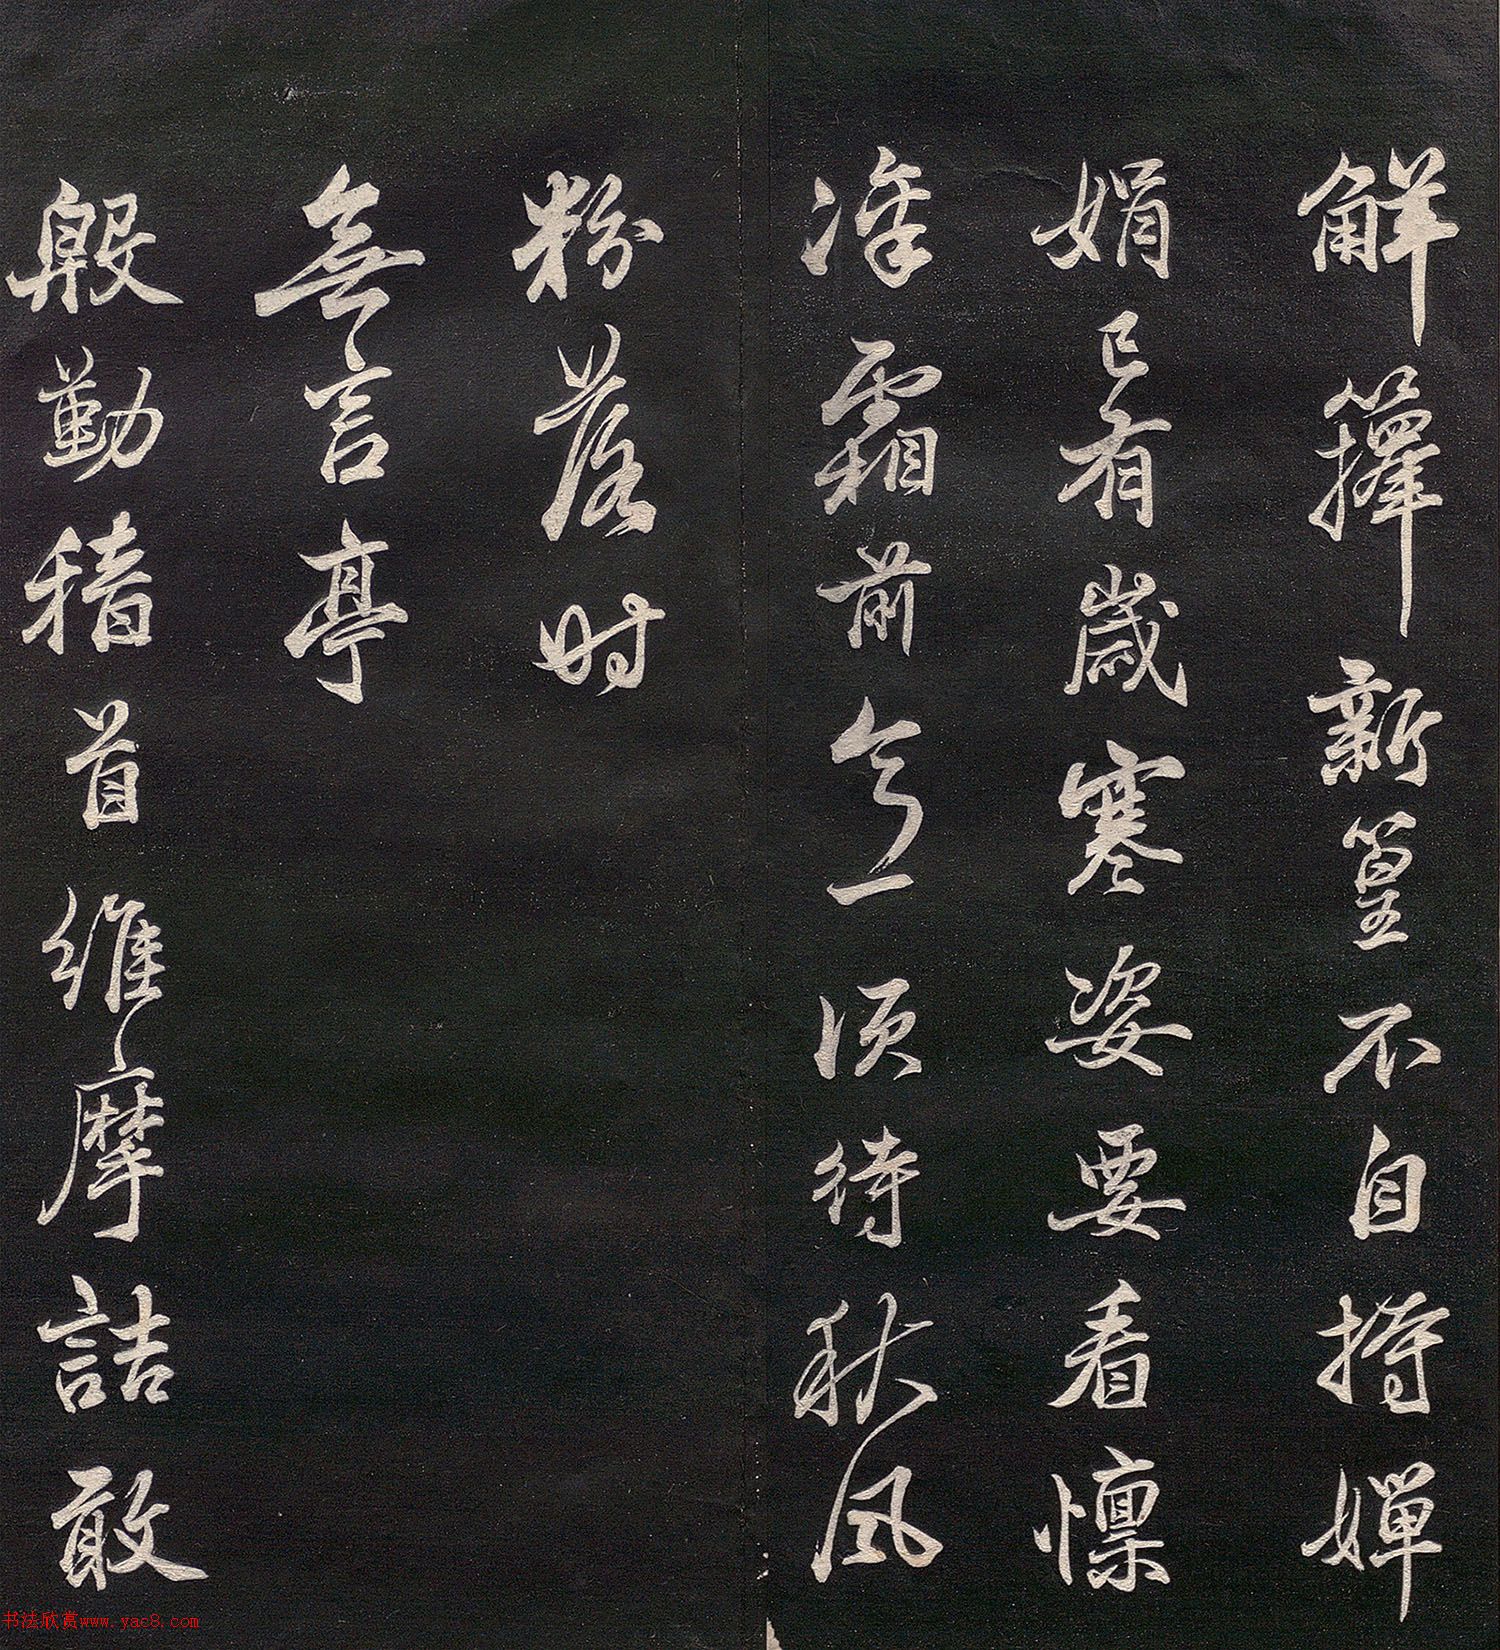 解籜新篁不自持嬋
娟已有歲寒姿要看
凜
凜霜前意須待秋風
粉落時
無言亭
殷勤稽首維摩詰敢
书法欣赏www.yac8.com